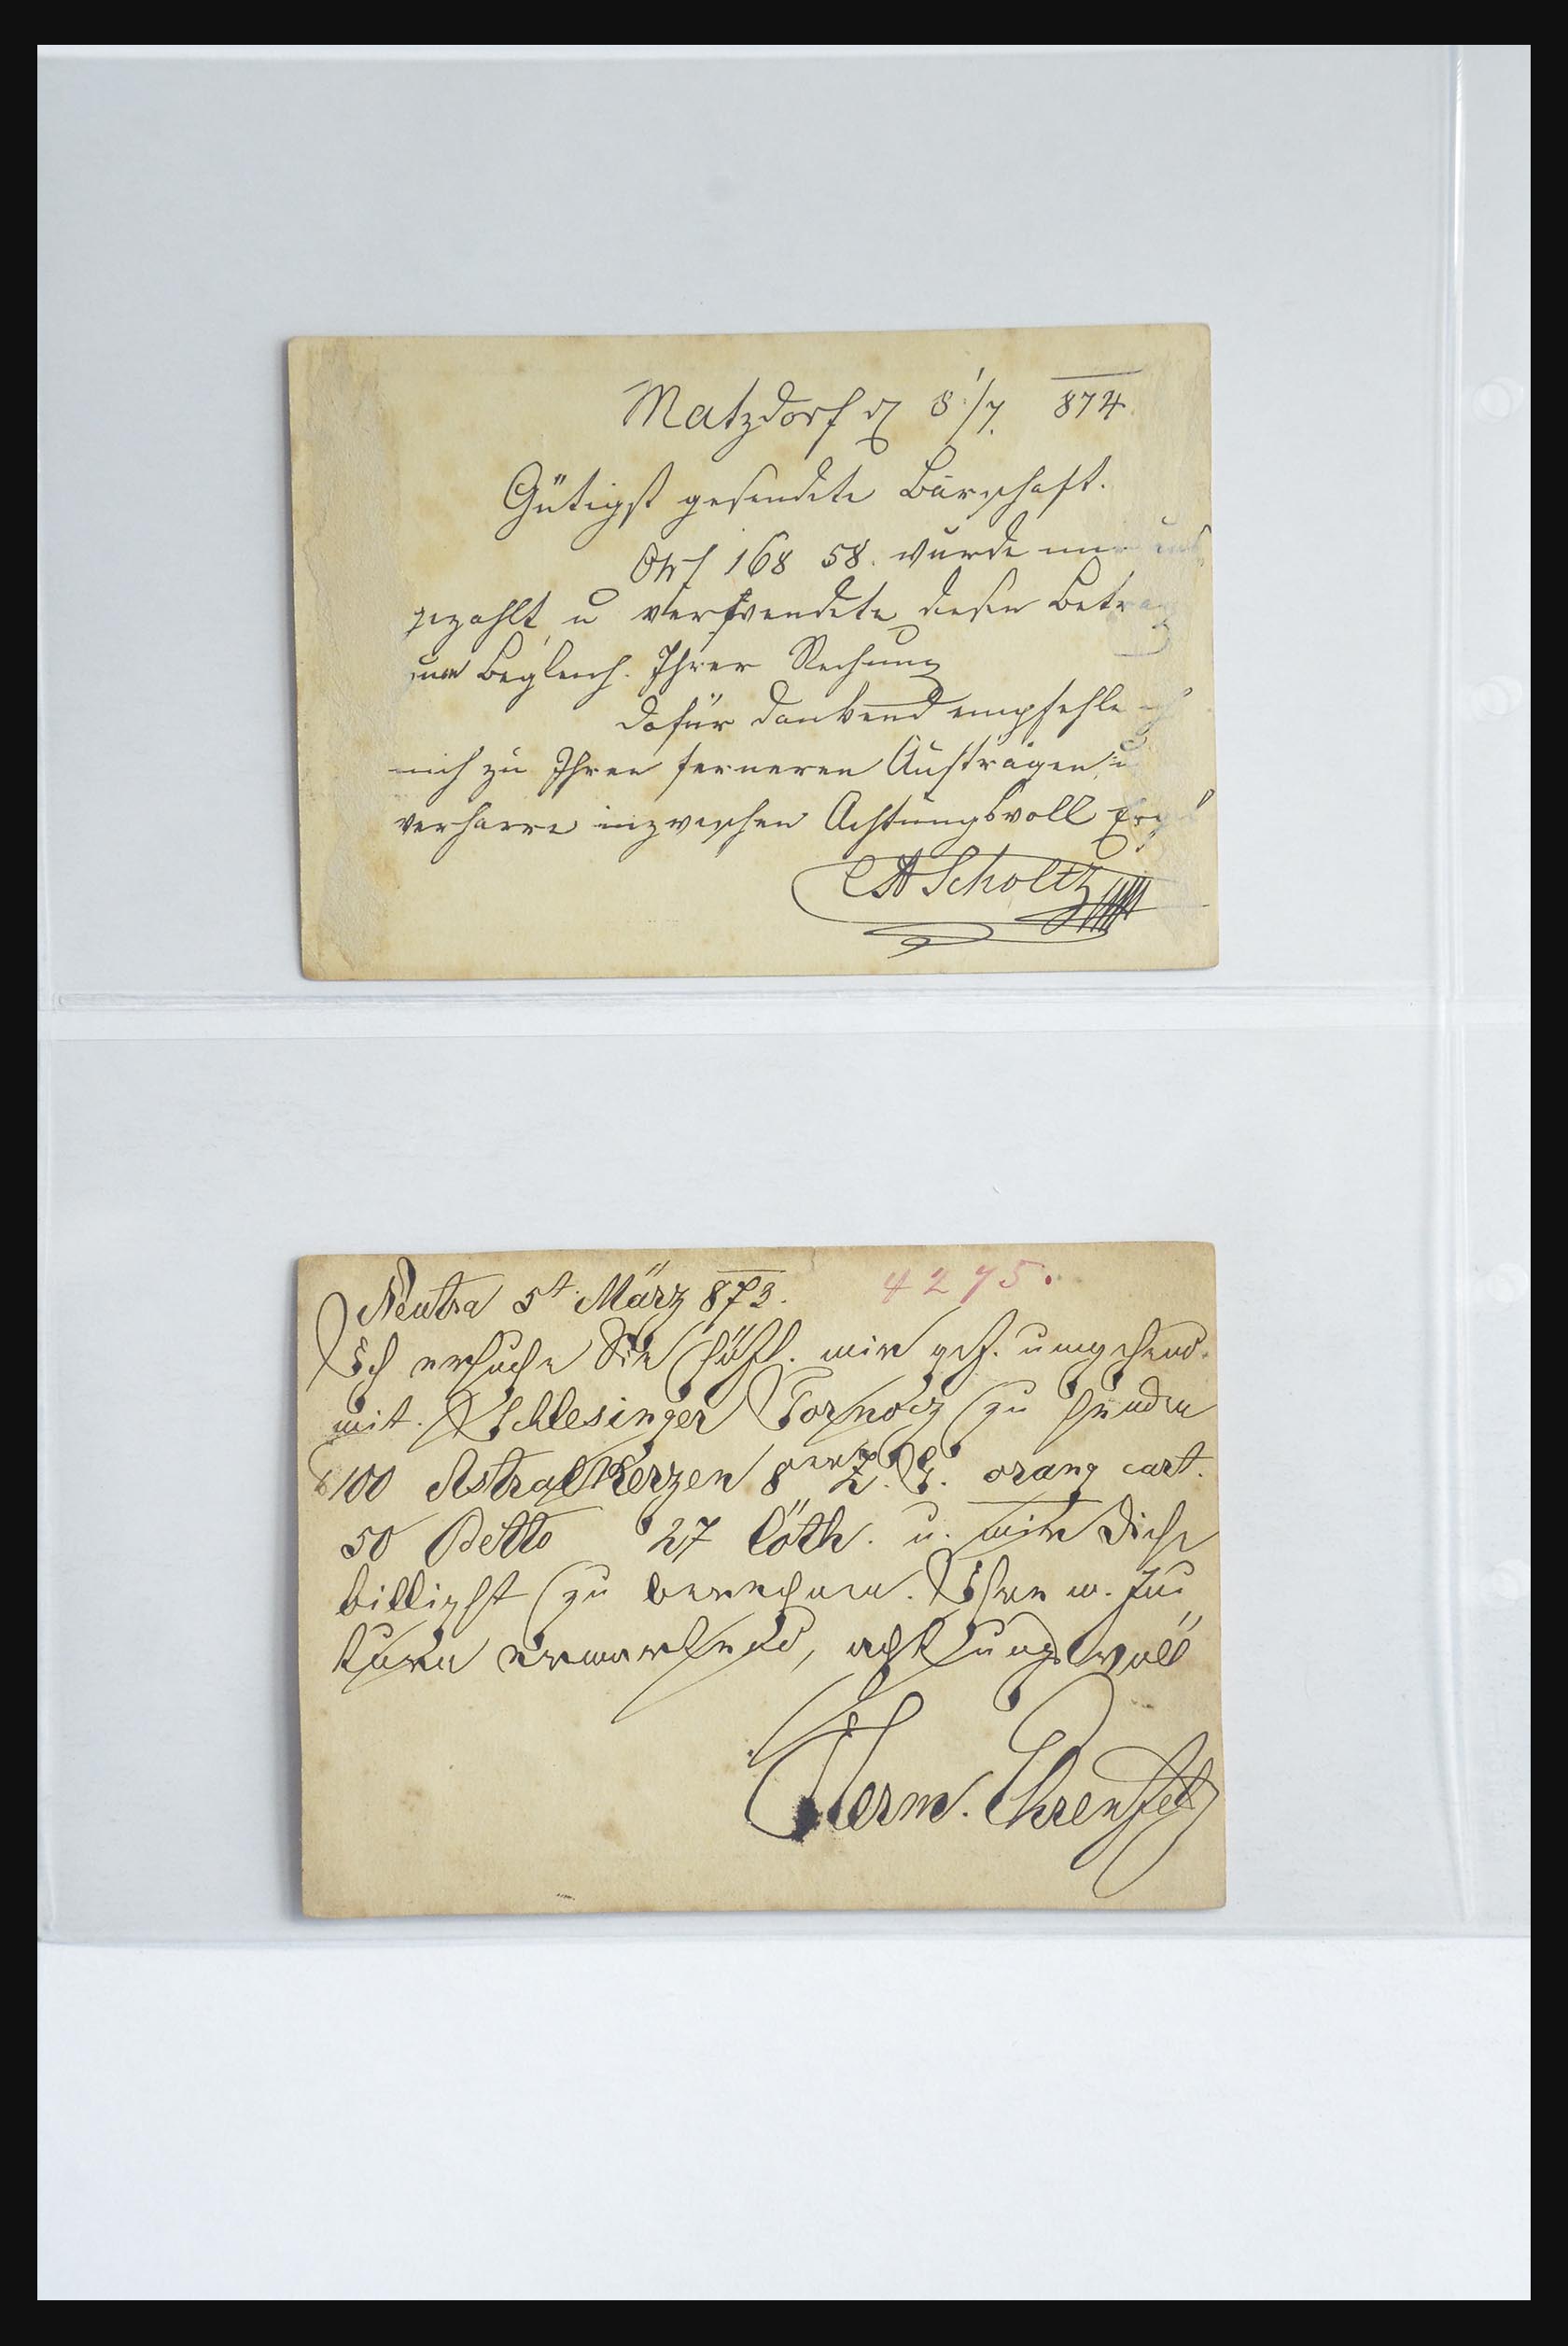 Matzdorf 8/7. 874
Gütigst gesendete Barschaft.
168 58. wurde mir
gezahlt u verwendete diesen Betrag
zum Begleich. Ihrer Rechnung
dafür dankend empfehle ich
mich zu Ihren ferneren Aufträgen u
verharre inzwischen Achtungsvoll Erg
CA Scholtz
Neutra 5t. März 873. 4275.
Ich ersuche Sie höfl. mir gef. umgehend.
mit. Schlesinger Tornócz zu senden
100 Astral Kerzen 8 orang cart.
50 Detto 27 löth. u. mir diese
billigst zu berechnen. Ihre w. Fac
turen erwartend, achtungsvoll
Herm. Ehrenfeld